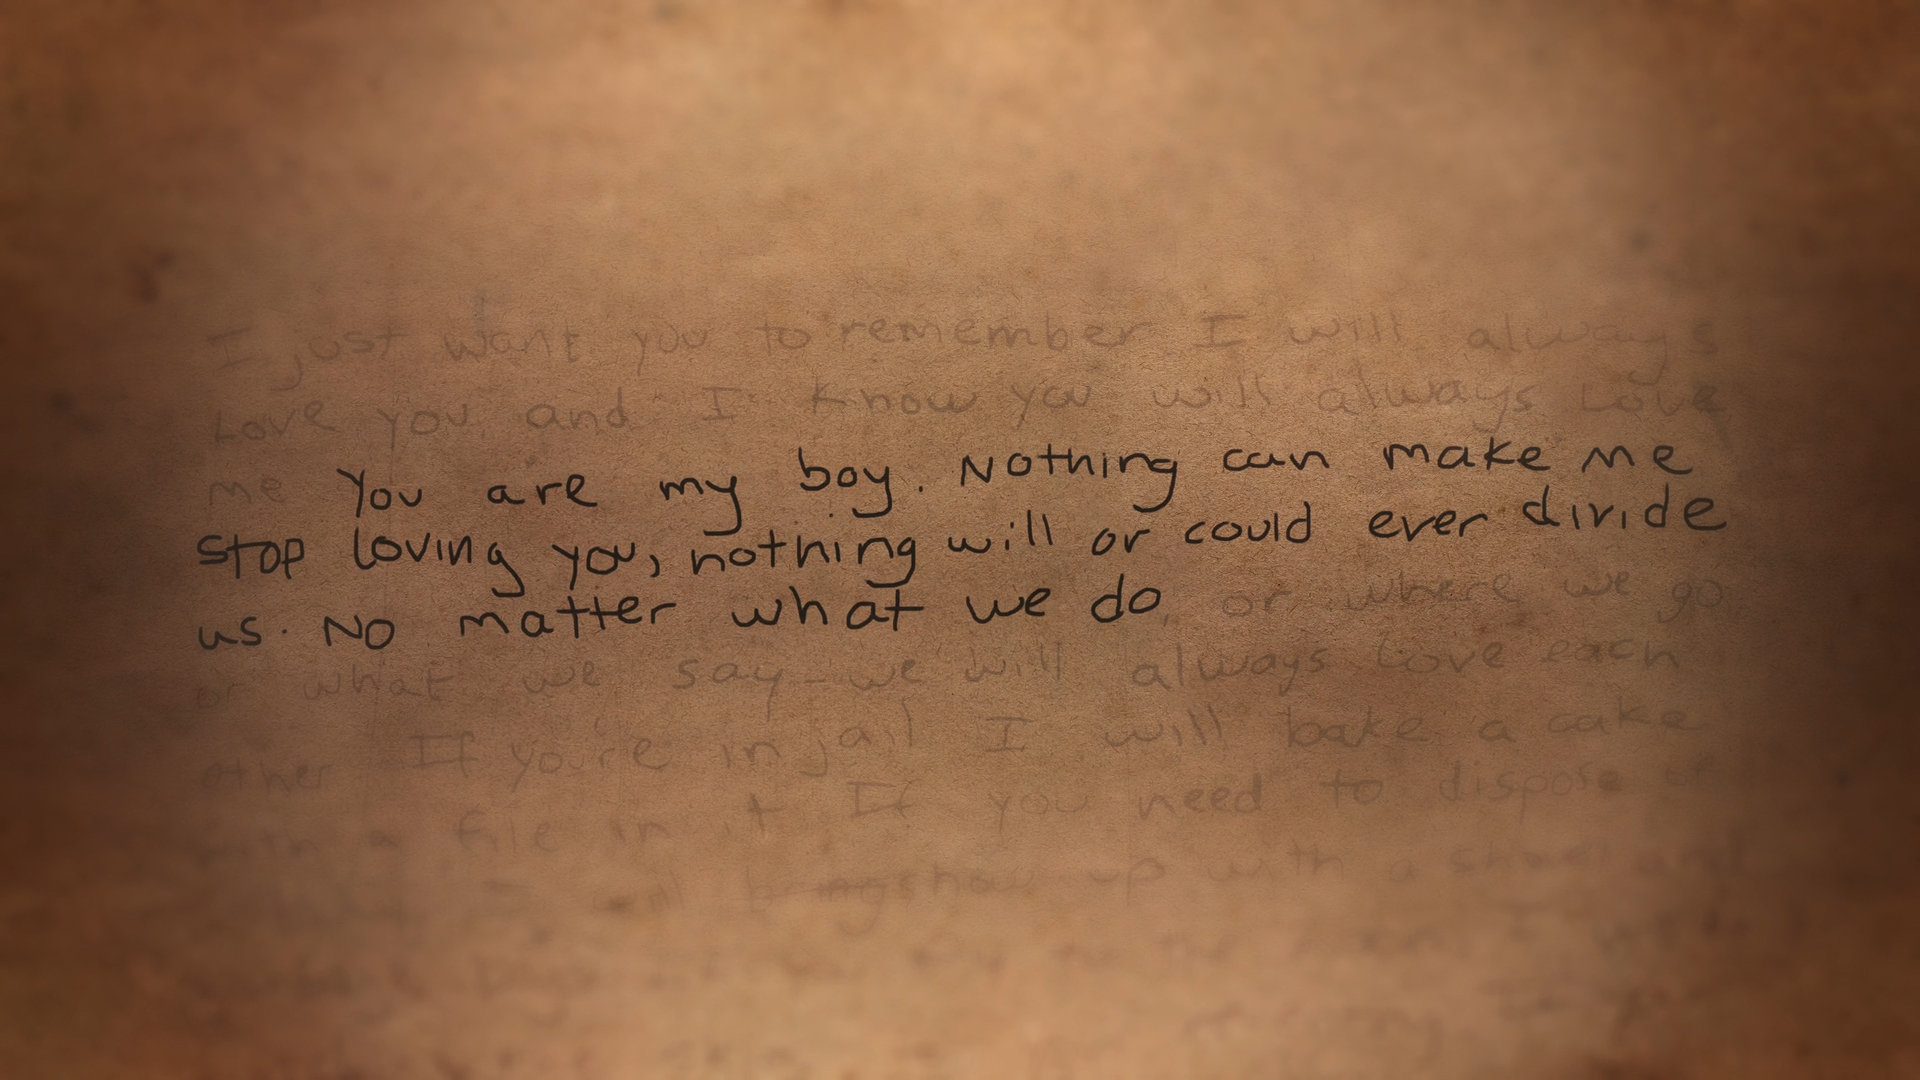 I just want you to remember I will always
Love you, and I know you will always Love
me You are my boy. Nothing can make me
stop loving you, nothing will or could ever divide
us. No matter what we do, or where we go
or what we say - we will always Love each
other If you're in jail I will bake a cake
with a file in it If you need to dispose of
I will show up with a and